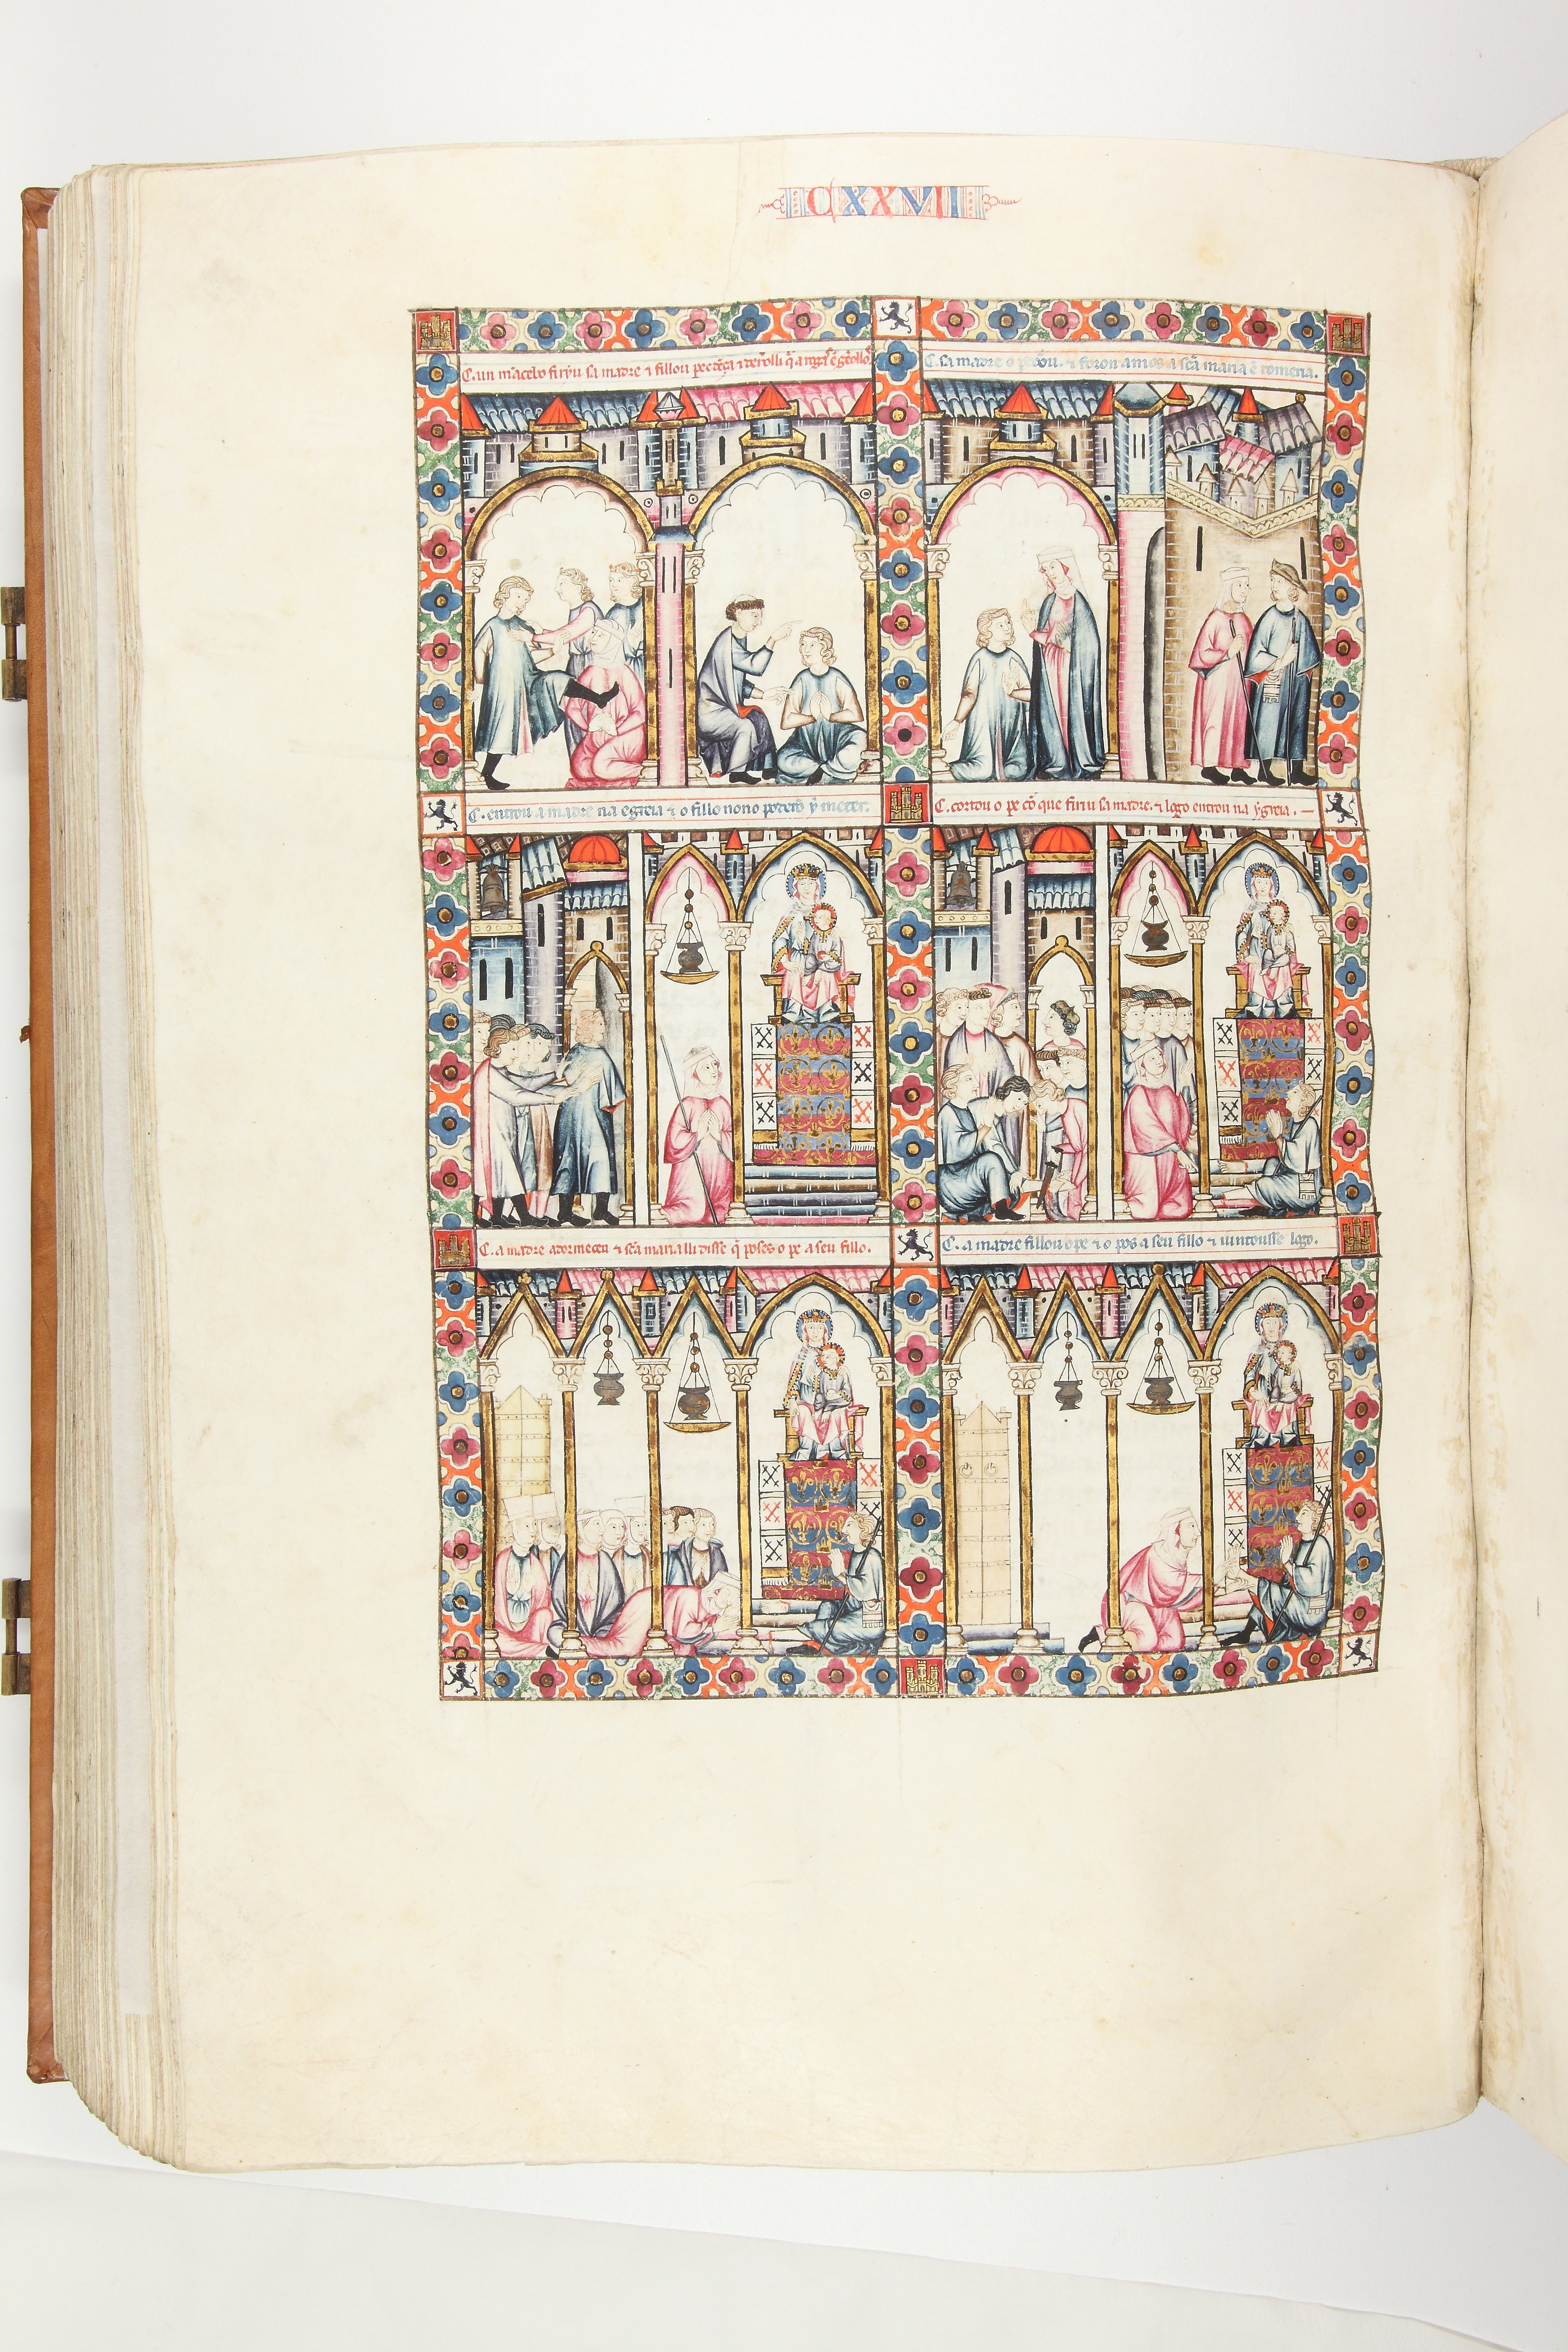 CXXVII
C. un mācebo firyu sa madre ⁊ fillou
C. sa madre o ꝑdōou. ⁊ foron amos a scā maria ē romeria.
C. entrou a madre na egreia ⁊ o fillo nono poderō y meter.
C. cortou o pe cō que firiu sa madre. ⁊ logo entrou na ygreia.
C. a madre adormeceu ⁊ scā maria lli disse q̄ poses o pe a seu fillo.
C. a madre fillou o pe ⁊ o pos a seu fillo ⁊ iuntousse logo.